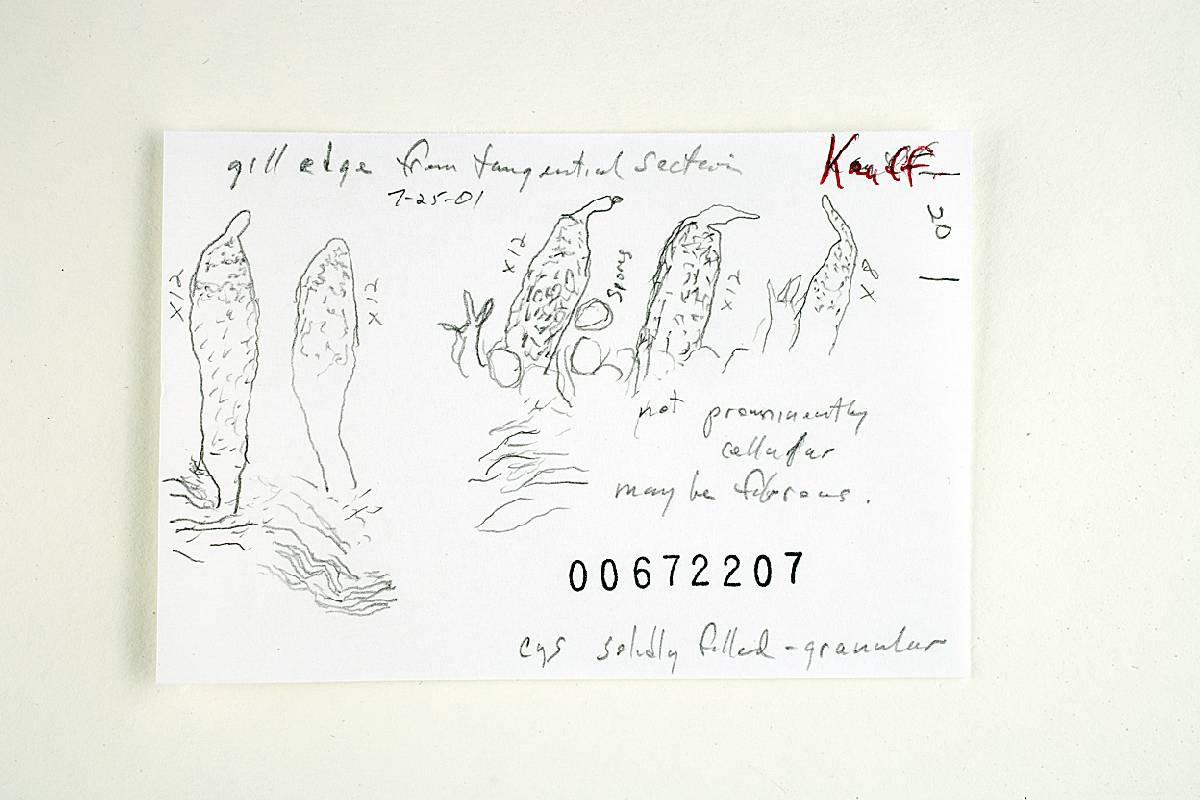 gill edge from tangential section
7-25-01
Kauff.
20
1
x12
x12
x12
spores
x12
8x
not prominently
cellular
may be fibrous.
00672207
cys solidly filled - granular